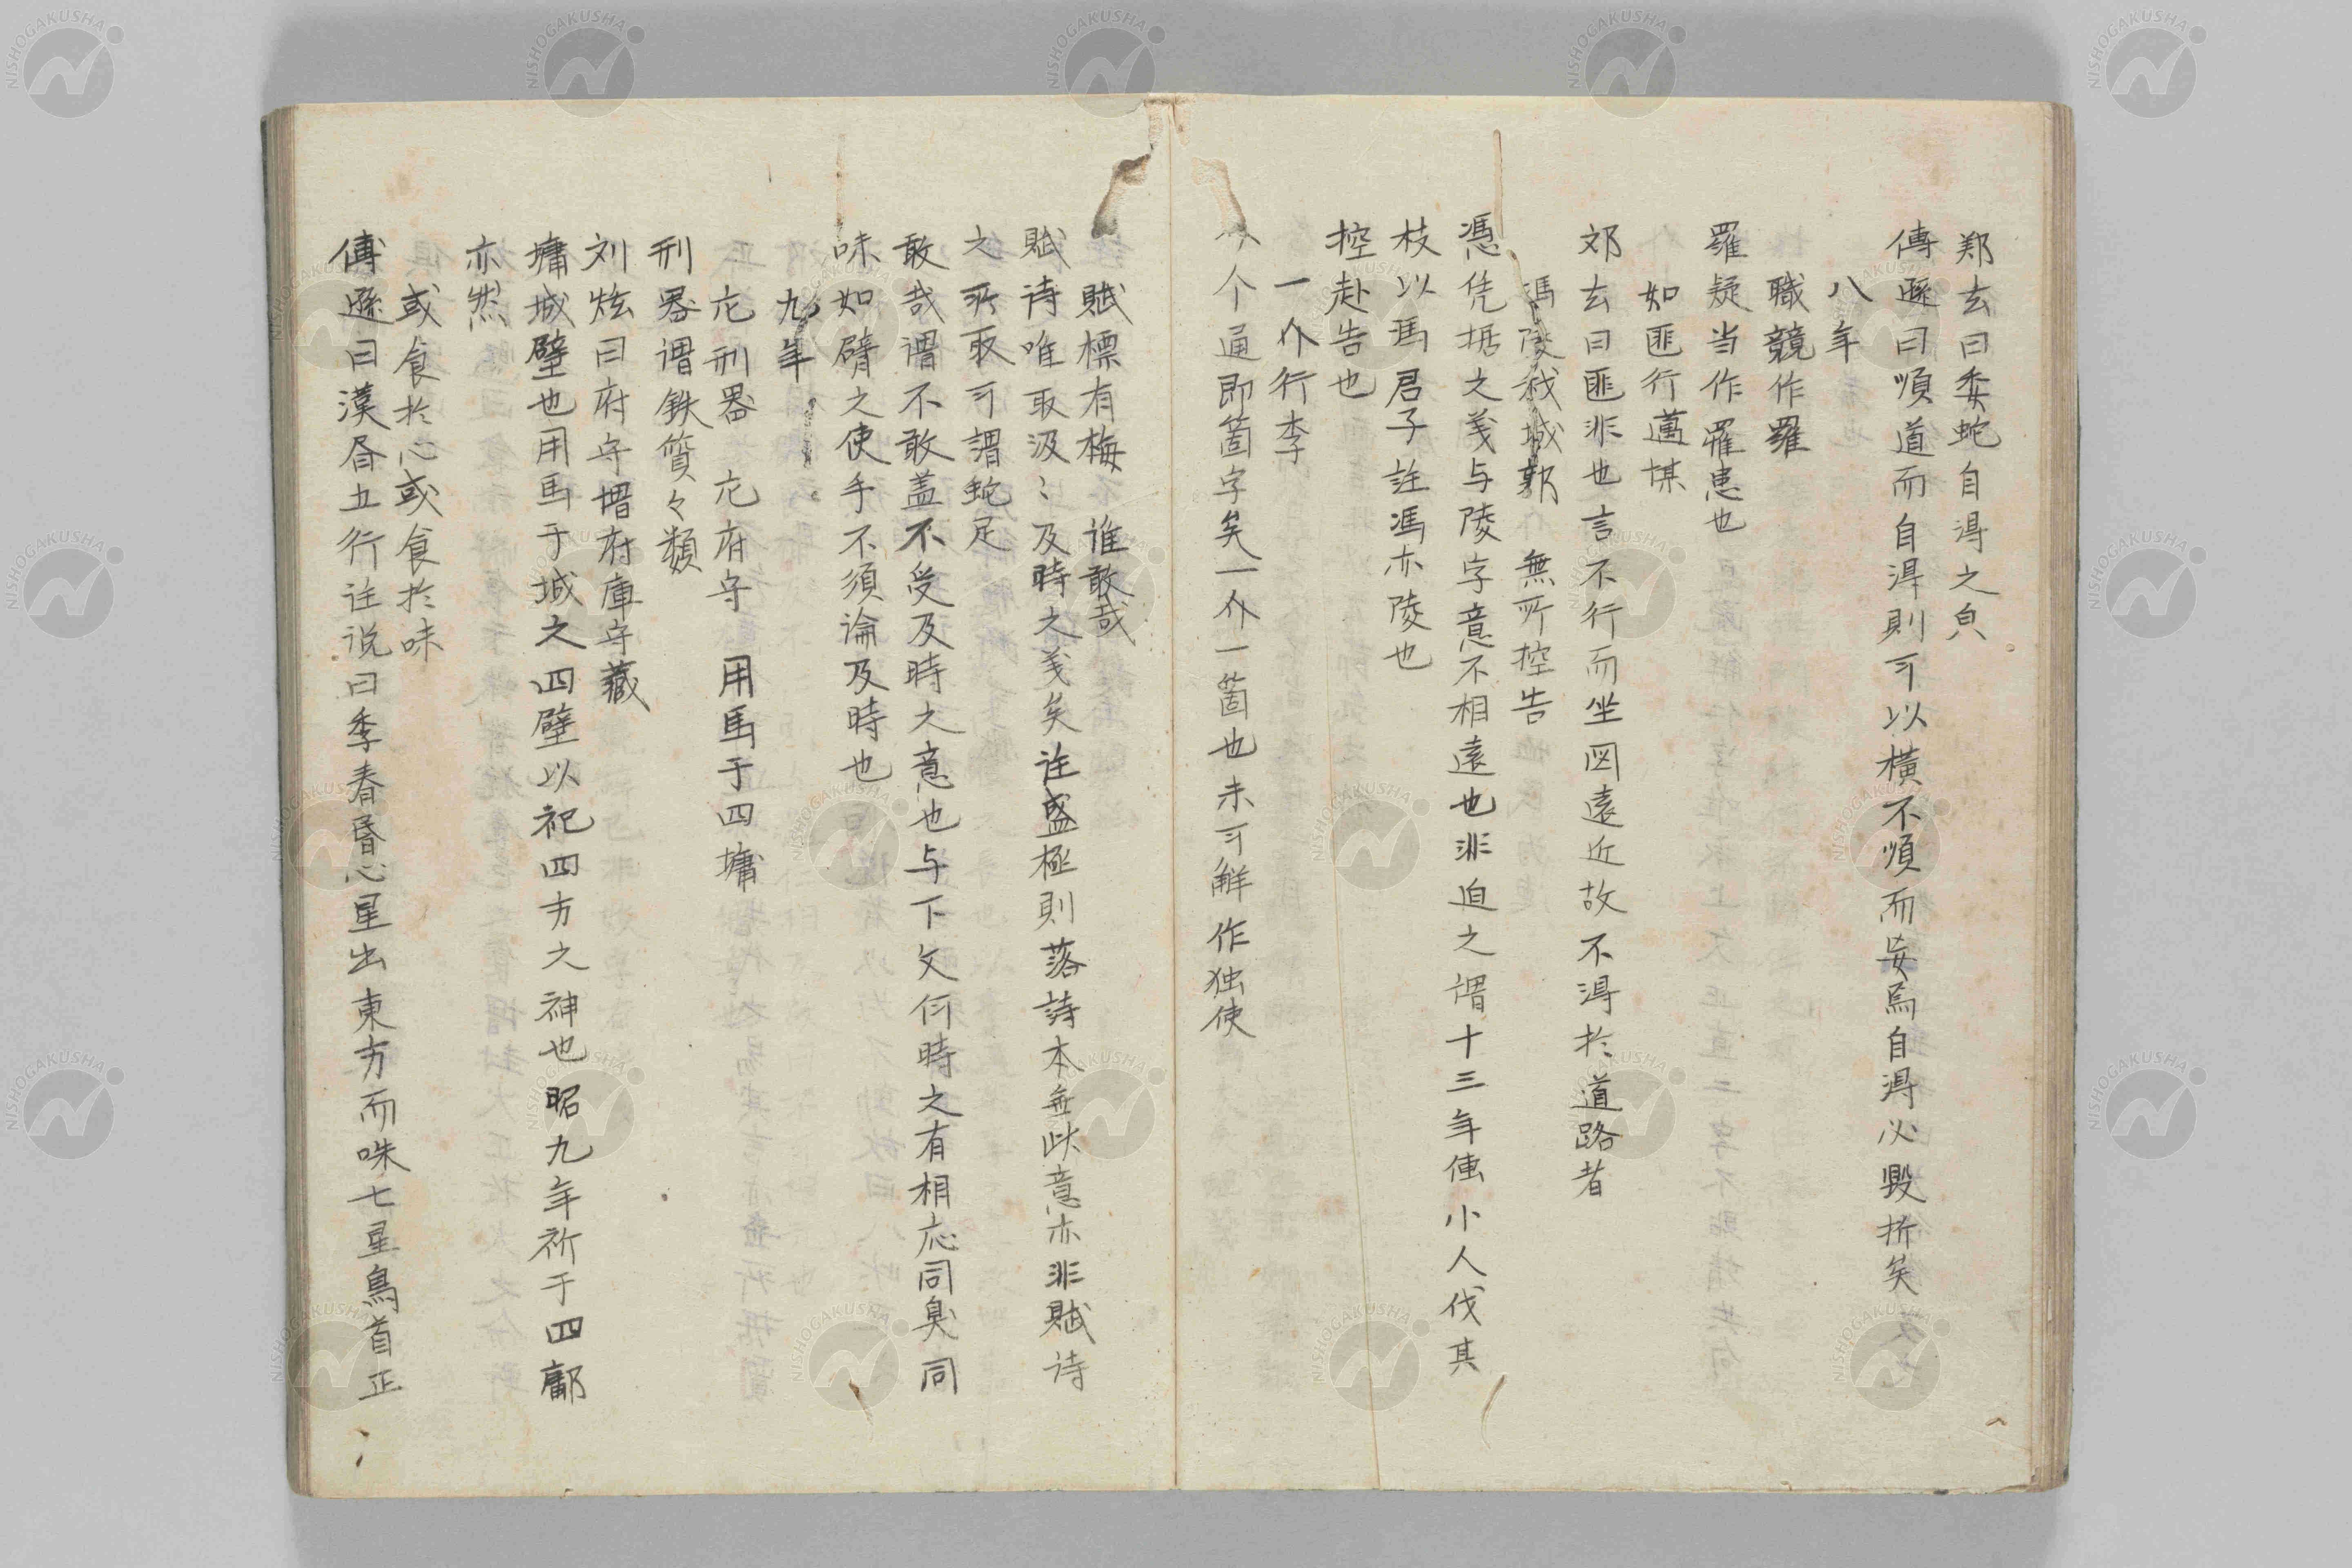 鄭玄曰委蛇自得之皃
傅遜曰順道而自得則可以橫不順而妄爲自得必毀折矣
八年
職競作羅
羅疑当作罹患也
如匪行邁謀
鄭玄曰匪非也言不行而坐図遠近故不得於道路者
馮陵我城郭 無所控告
馮凭拠之義与陵字意不相遠也非迫之謂十三年傳小人伐其
枝以馮君子註馮亦陵也
控赴告也
一介行李
介个通即箇字矣一介一箇也未可觧作独使
賦標有梅 誰敢哉
賦诗唯取汲〻及時之義矣註盛極則落詩本無此意亦非賦诗
之所取可謂蛇足
敢哉谓不敢盖不受及時之意也与下文何時之有相応同臭同
味如臂之使手不須論及時也
九年
庀刑器 庀府守 用馬于四墉
刑器谓鉄質々類
刘炫曰府守謂府庫守藏
墉城壁也用馬于城之四壁以祀四方之神也昭九年祈于四鄘
亦然
或食於心或食於咮
傅遜曰漢書五行註说曰季春昏心星出東方而咮七星鳥首正
NISHOGAKUSHA